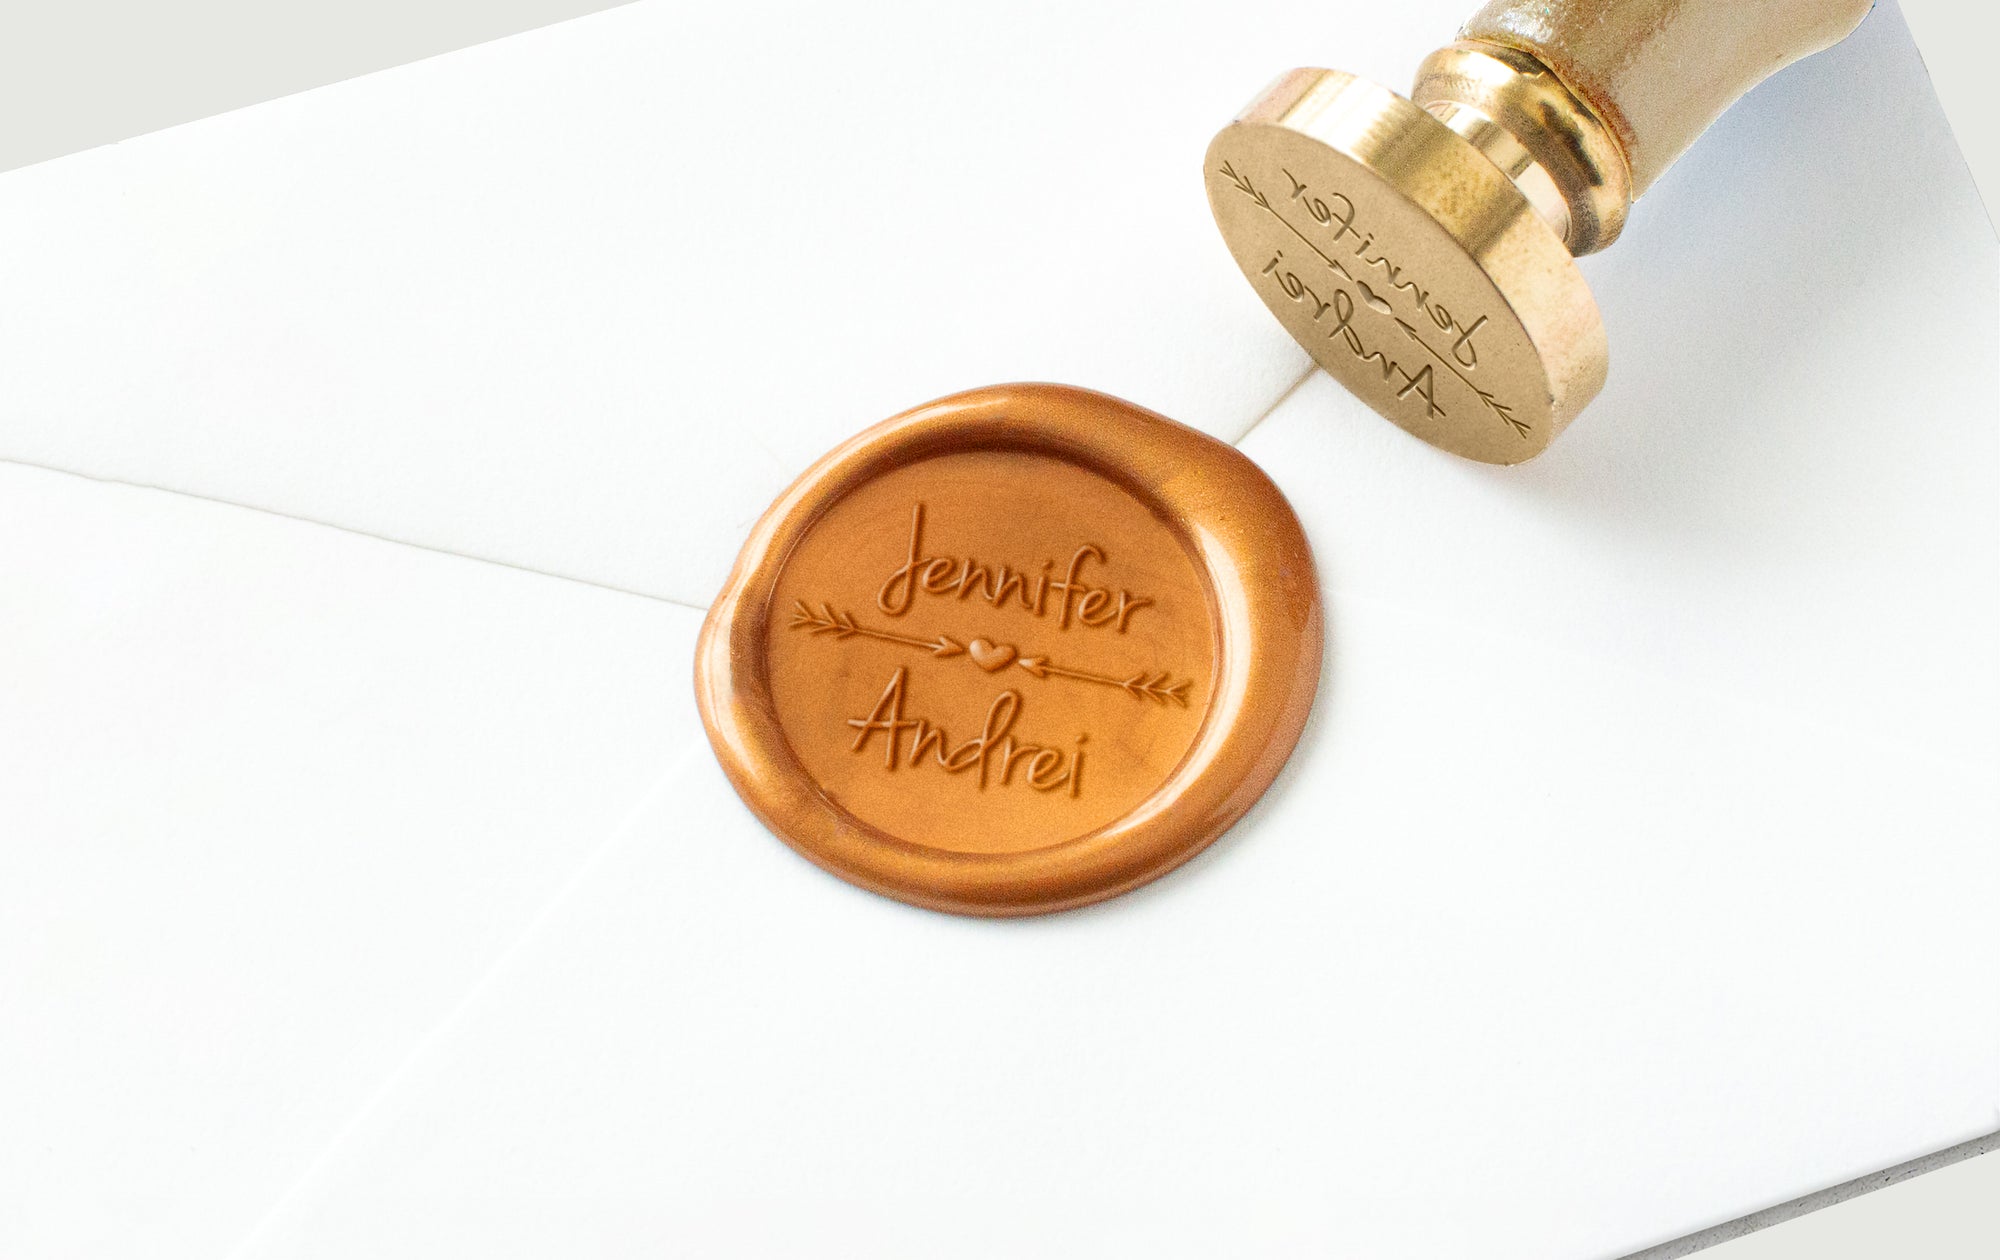 Jennifer
Andrei
Jennifer
Andrei